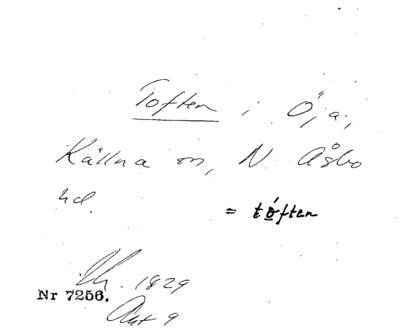 Toften i Öja,
Källna sn, N. Åsbo
hd.
= tóften
1829
Nr 7256.
Akt 9